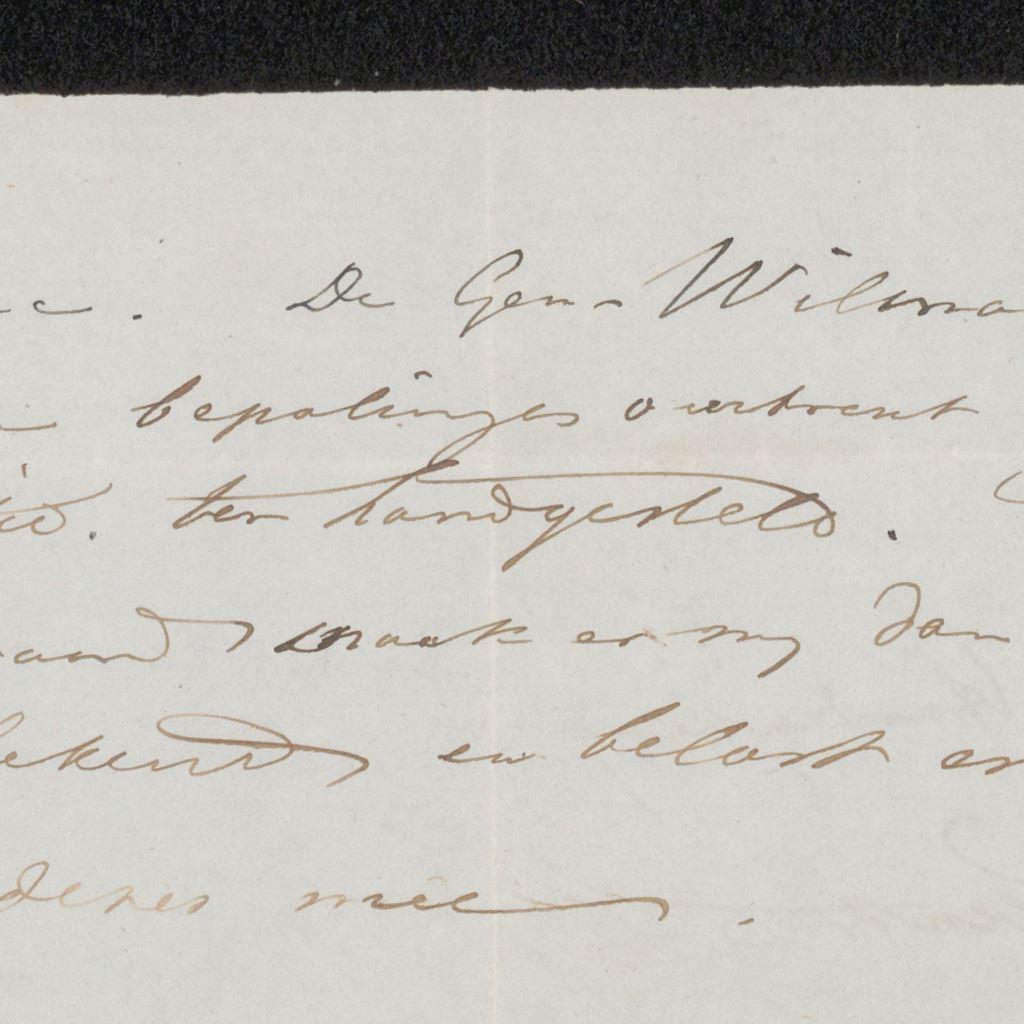 De Gen. Wilma
bepalinges overtrent
ter handgesteld.
aand maak er my dan
bekend en belast er
deres mee.